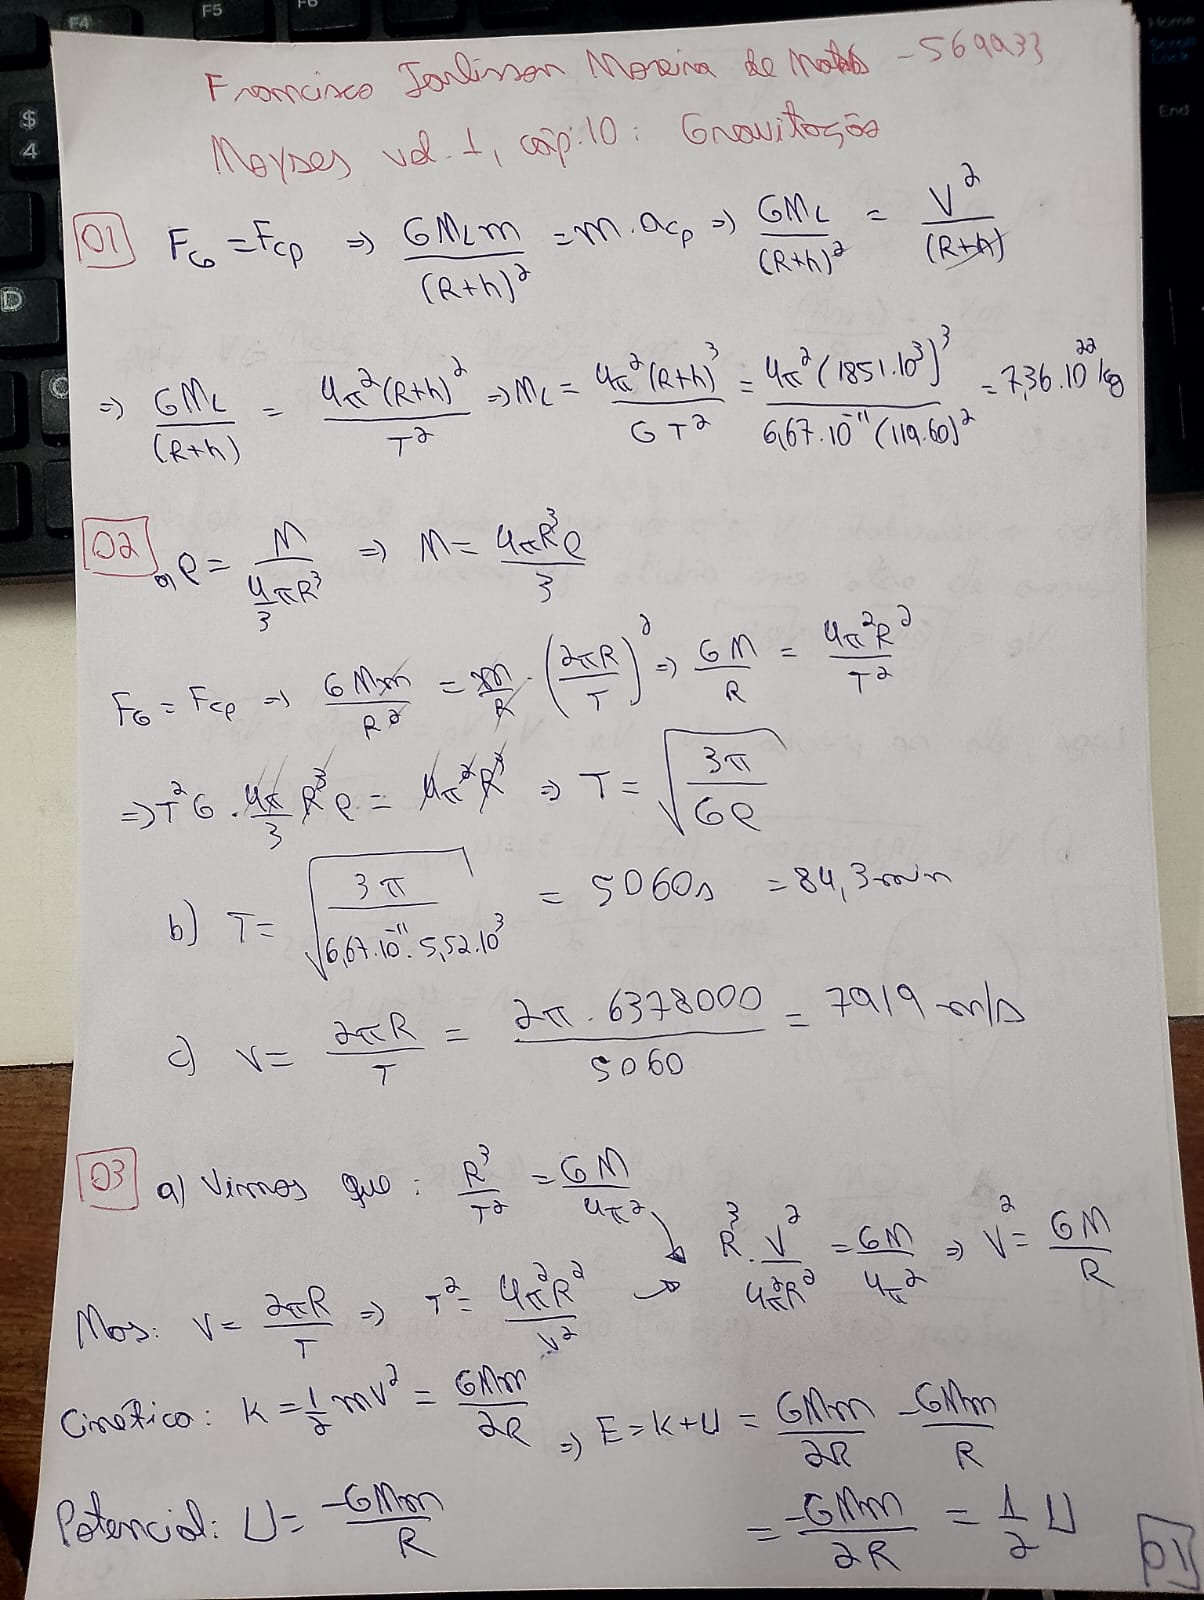 F5
F4
F6
Home
Scroll Lock
End
$
4
D
Francisco Jarlisson Moreira de Matos - 569933
Moyses vol. 1, cap. 10: Gravitação
01 FG = Fcp ⇒ GMLm/(R+h)² = m.acp ⇒ GML/(R+h)² = V²/(R+h)
⇒ GML/(R+h) = 4π²(R+h)²/T² ⇒ ML = 4π²(R+h)³/GT² = 4π²(1851.10³)³/6,67.10⁻¹¹(119.60)² = 7,36.10²² kg
02 a) ρ = M/(4/3 πR³) ⇒ M = 4πR³ρ/3
FG = Fcp ⇒ GMm/R² = m/R . (2πR/T)² ⇒ GM/R = 4π²R²/T²
⇒ T²G . 4π/3 R³ρ = 4π²R³ ⇒ T = √(3π/Gρ)
b) T = √(3π/6,67.10⁻¹¹.5,52.10³) = 5060s = 84,3 min
c) V = 2πR/T = 2π.6378000/5060 = 7919 m/s
03 a) Vimos que: R³/T² = GM/4π²
Mas: V = 2πR/T ⇒ T² = 4π²R²/V² → R³.V²/4π²R² = GM/4π² ⇒ V² = GM/R
Cinética: K = 1/2 mV² = GMm/2R
⇒ E = K + U = GMm/2R - GMm/R
Potencial: U = -GMm/R
= -GMm/2R = 1/2 U
01